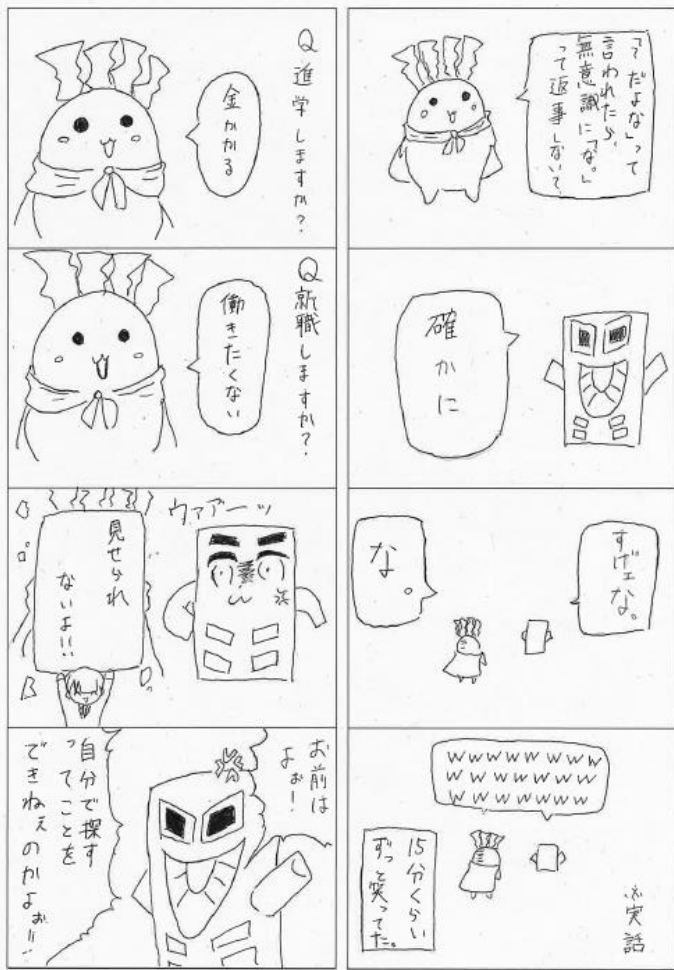 「~だよな」って
言われたら、
無意識に「な。」
って返事しない?
確かに
すげェな。
な。
wwwwwwww
wwwwwwww
wwwwwww
15分くらい
ずっと笑ってた。
※実話
Q進学しますか?
金かかる
Q就職しますか?
働きたくない
ウァアーッ
見せられ
ないよ!!
お前は
よぉ!
自分で探す
ってことを
できねぇのかよぉ!!